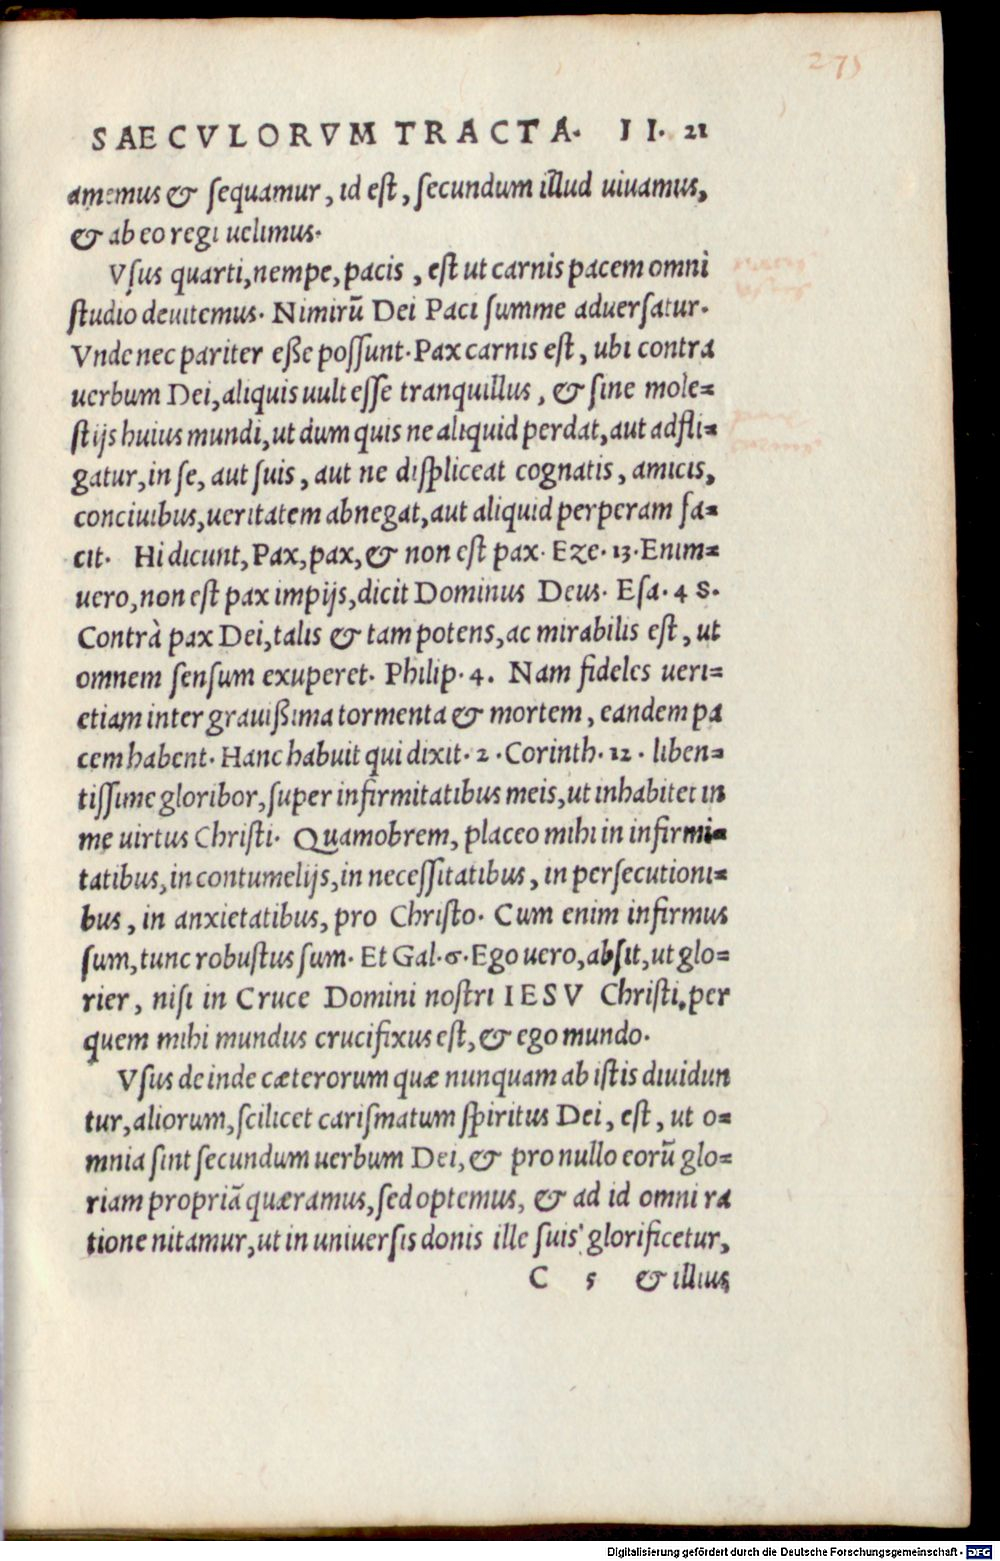 271
SAECVLORVM TRACTA. II. 21
amemus & sequamur, id est, secundum illud uiuamus,
& ab eo regi uelimus.
Vsus quarti, nempe, pacis, est ut carnis pacem omni
studio deuitemus. Nimirũ Dei Paci summe aduersatur.
Vnde nec pariter eße possunt. Pax carnis est, ubi contra
uerbum Dei, aliquis uult esse tranquillus, & sine mole=
stijs huius mundi, ut dum quis ne aliquid perdat, aut adfli=
gatur, in se, aut suis, aut ne displiceat cognatis, amicis,
conciuibus, ueritatem abnegat, aut aliquid perperam fa=
cit. Hi dicunt, Pax, pax, & non est pax. Eze. 13. Enim=
uero, non est pax impijs, dicit Dominus Deus. Esa. 48.
Contrà pax Dei, talis & tam potens, ac mirabilis est, ut
omnem sensum exuperet. Philip. 4. Nam fideles ueri=
etiam inter grauißima tormenta & mortem, eandem pa
cem habent. Hanc habuit qui dixit. 2. Corinth. 12. liben=
tissime gloribor, super infirmitatibus meis, ut inhabitet in
me uirtus Christi. Quamobrem, placeo mihi in infirmi=
tatibus, in contumelijs, in necessitatibus, in persecutioni=
bus, in anxietatibus, pro Christo. Cum enim infirmus
sum, tunc robustus sum. Et Gal. 6. Ego uero, absit, ut glo=
rier, nisi in Cruce Domini nostri IESV Christi, per
quem mihi mundus crucifixus est, & ego mundo.
Vsus deinde cæterorum quæ nunquam ab istis diuidun
tur, aliorum, scilicet carismatum spiritus Dei, est, ut o=
mnia sint secundum uerbum Dei, & pro nullo eorũ glo=
riam propriã quæramus, sed optemus, & ad id omni ra
tione nitamur, ut in uniuersis donis ille suis glorificetur,
C 5 & illius
Digitalisierung gefördert durch die Deutsche Forschungsgemeinschaft - DFG